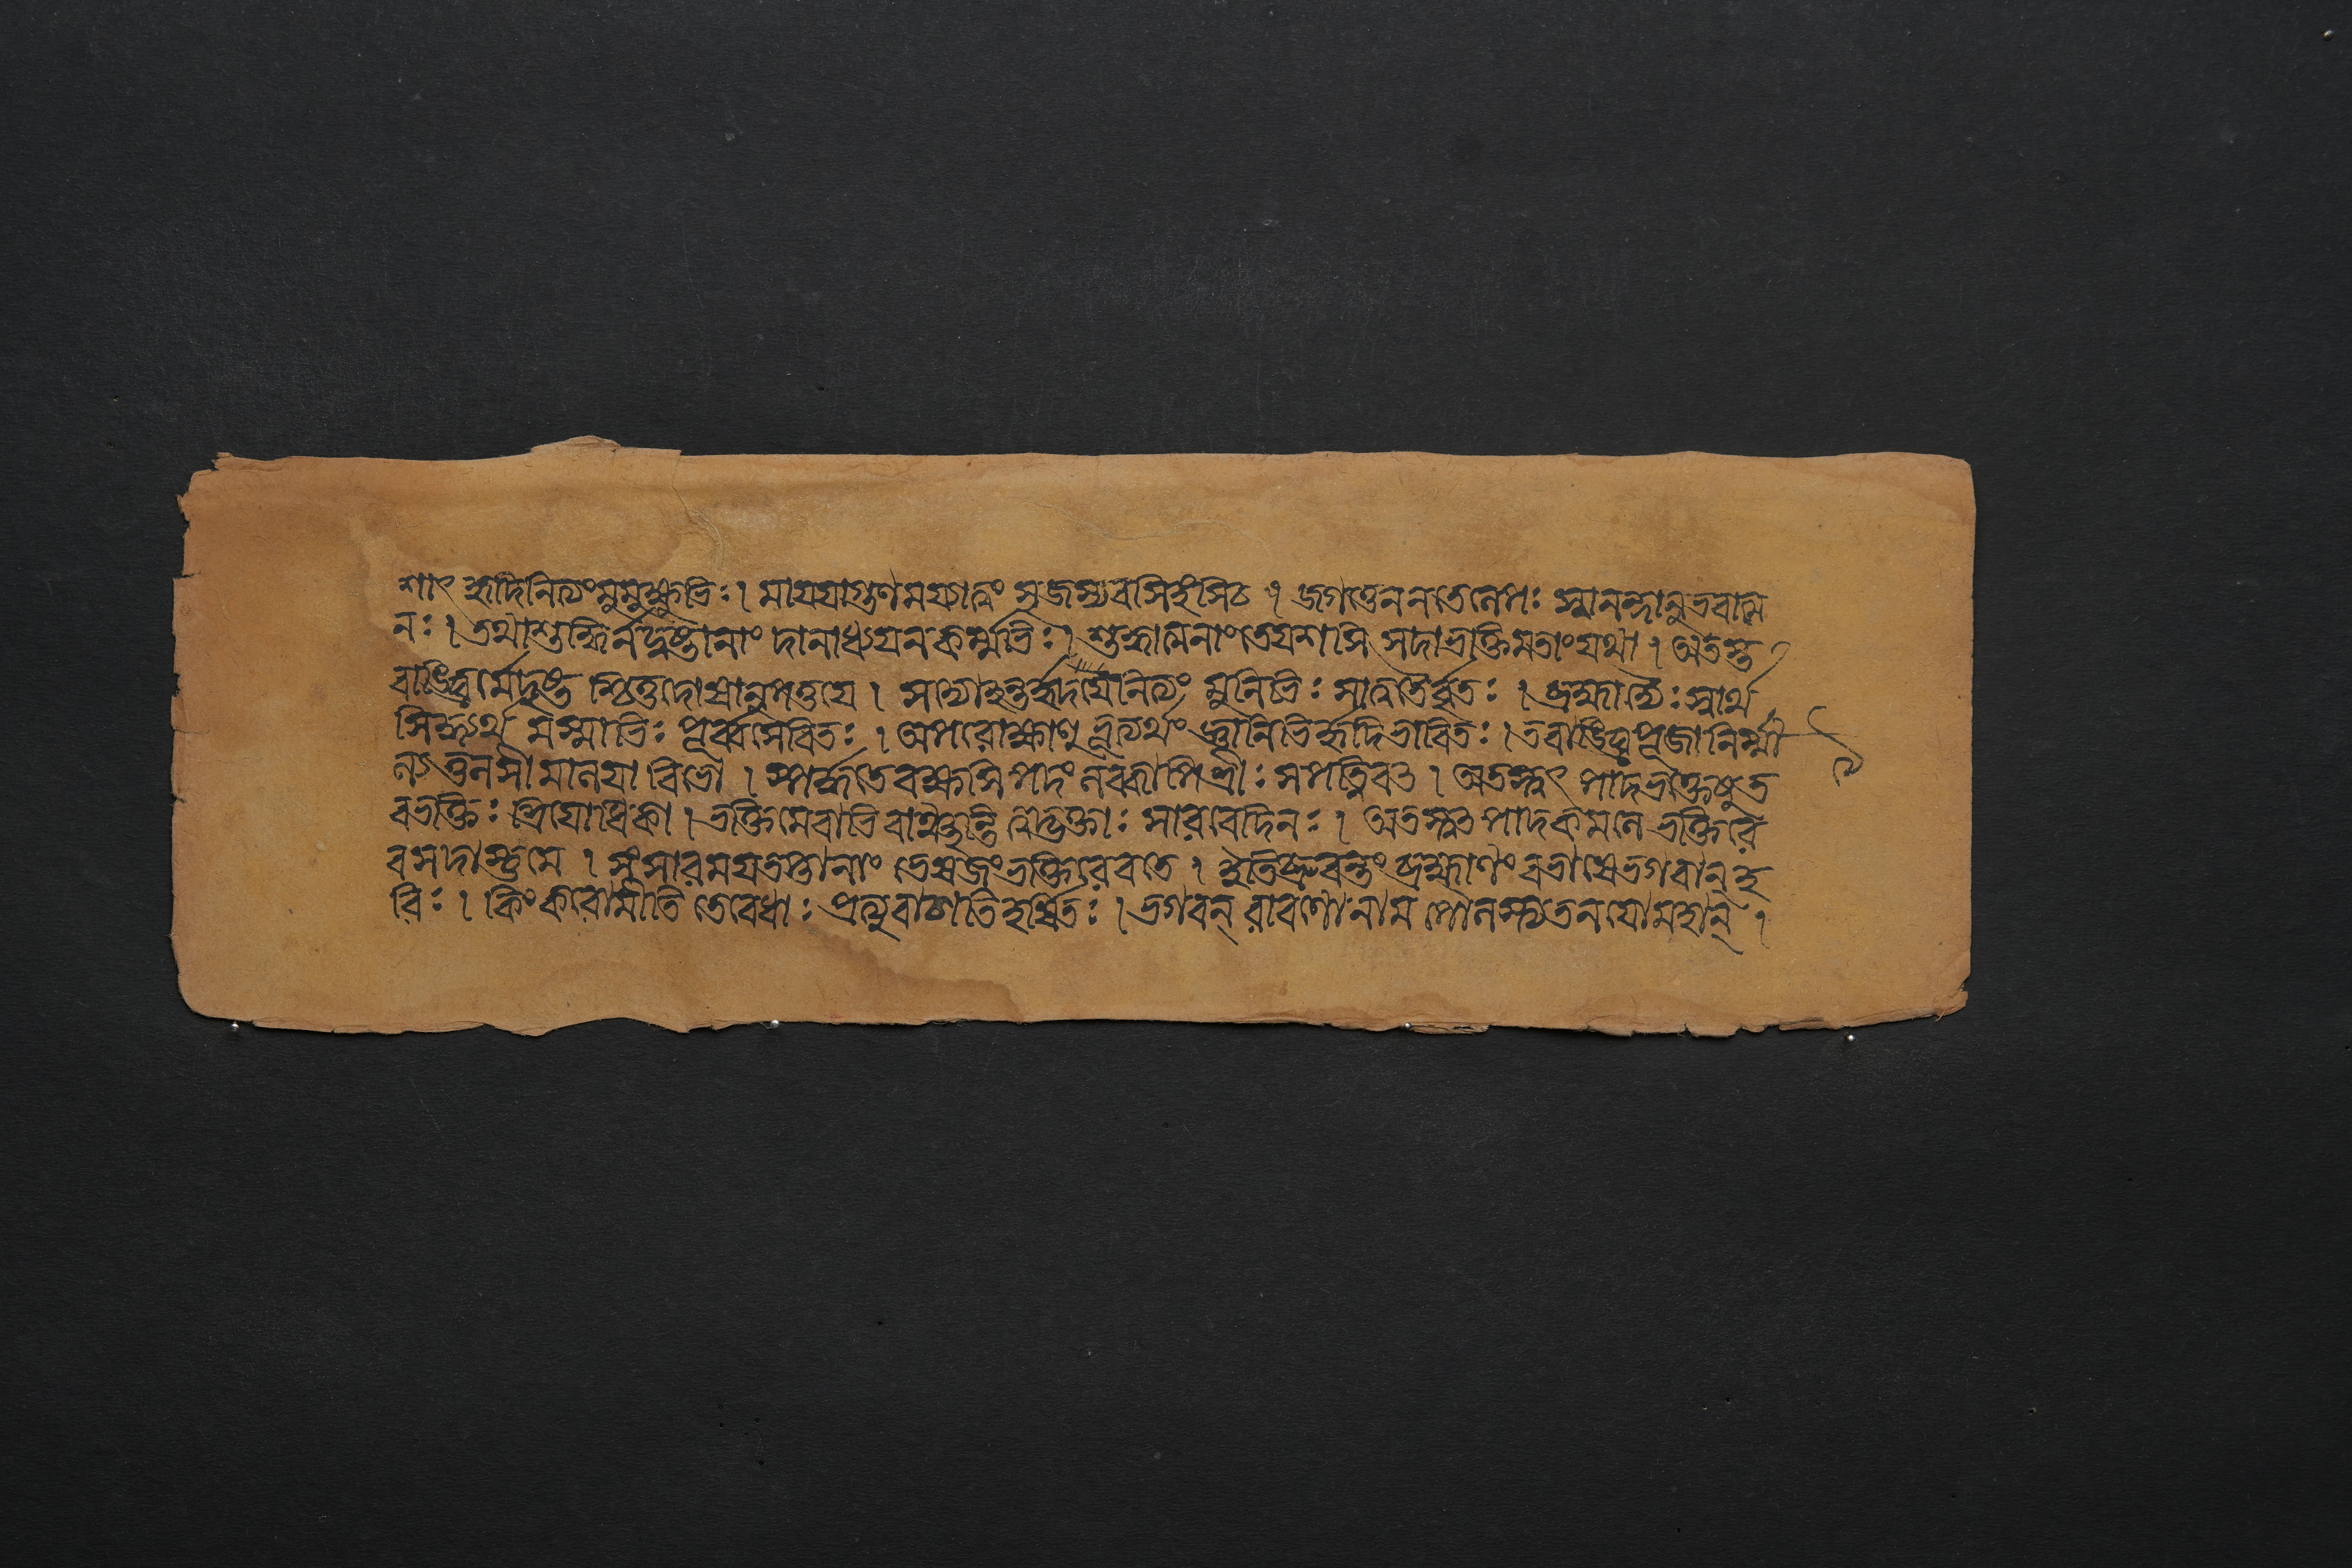 শাৎ হৃদিনিত্যংমুমুক্ষুভিঃ। মায়য়াগুণময়্যাত্বং সৃজস্যবসিহংসিচ । জগত্তেননতেলেপঃ স্বানন্দানুভবাত্ম
নঃ। তথাশুদ্ধির্নদুষ্টানাং দানাধ্যয়নকর্ম্মভিঃ। শুদ্ধাত্মনাংতেযশসি সদাভক্তিমতাংযথা। অতস্ত
বাঙ্ঘ্রির্মেদৃষ্ট শ্চিত্তদোষাপনুত্তয়ে । সদ্যোহন্তর্হৃদয়েনিত্যং মুনিভিঃ সাত্বতৈর্বৃতঃ । ব্রহ্মাদ্যৈঃ স্বার্থ
সিদ্ধ্যর্থ মস্মাভিঃ পূর্ব্বসেবিতঃ । অপরোক্ষানুভূত্যর্থং জ্ঞানিভির্হৃদিভাবিতঃ।তবাঙ্ঘ্রিপূজানির্ম্মা
ল্যতুলসীমালয়া বিভো । স্পর্দ্ধতেবক্ষসিপদং লব্ধ্বাপিশ্রীঃ সপত্নিবৎ। অতস্ত্বৎপাদভক্তেষুত
বভক্তিঃ শ্রিয়োধিকা। ভক্তিমেবাভিবাঞ্ছন্তি ত্বদ্ভক্তাঃ সারবেদিনঃ। অতস্ত্বৎপাদকমলে ভক্তিরে
বসদাস্তুমে । সংসারময়তপ্তানাং ভেষজংভক্তিরেবতে । ইতিব্রুবন্তং ব্রহ্মাণং বভাষেভগবান্ হ
রিঃ। কিংকরোমীতি তংবেধাঃ প্রত্যুবাচাতিহর্ষিতঃ।ভগবন্ রাবণোনাম পৌলস্ত্যতনয়োমহান্ ।